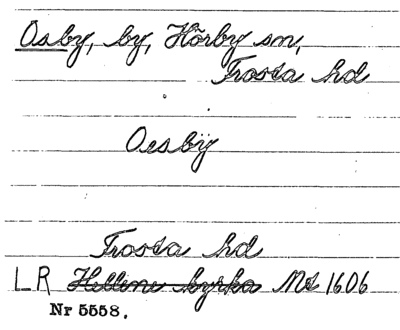 Osby, by, Hörby sn,
Frosta hd
Oesbÿ
Frosta hd
LR Hellene kyrka Mt 1606
Nr 5558.